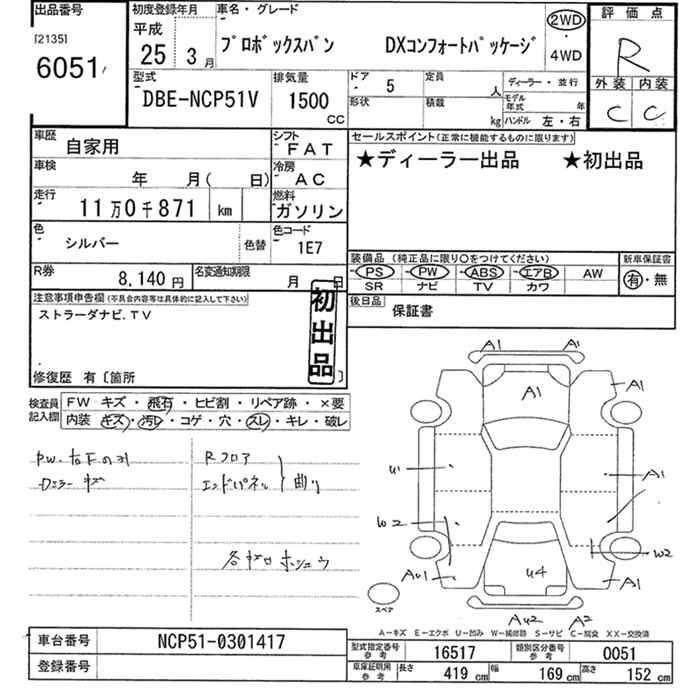 出品番号
[2135]
6051
初度登録年月
平成
25 3月
車名・グレード
プロボックスバン DXコンフォートパッケージ
2WD
・
4WD
評価点
R
外装 内装
C C
型式
DBE-NCP51V
排気量
1500
CC
ドア
5
定員
人
ディーラー・並行
形状
積載
kg
モデル年式
年
ハンドル 左・右
車歴
自家用
シフト
FAT
車検
年 月( 日)
冷房
AC
走行
11万0千871 km
燃料
ガソリン
色
シルバー
色替
色コード
1E7
R券
8,140円
名変通知期限
月 日
セールスポイント(正常に機能するものに限ります)
★ディーラー出品 ★初出品
装備品 (純正品に限り○をつけてください)
PS PW ABS エアB AW
SR ナビ TV カワ
新車保証書
有・無
後日品
保証書
注意事項申告欄(不具合内容等は具体的に記入して下さい)
ストラーダナビ.TV
初出品
修復歴 有〔箇所 〕
検査員
記入欄
FW キズ・飛石・ヒビ割・リペア跡・×要
内装 キズ・汚レ・コゲ・穴・スレ・キレ・破レ
Rフロア
エンドパネル
曲り
A1 A1
A1
A1
U1
A1
W2
W2
U4
A1
AU2 A2
スペア
A-キズ E-エクボ U-凹み W-補修跡 S-サビ C-腐食 XX-交換済
車台番号
NCP51-0301417
登録番号
型式指定番号
参考
16517
類別区分番号
参考
0051
車庫証明用
参考
長さ 419cm 幅 169cm 高さ 152cm